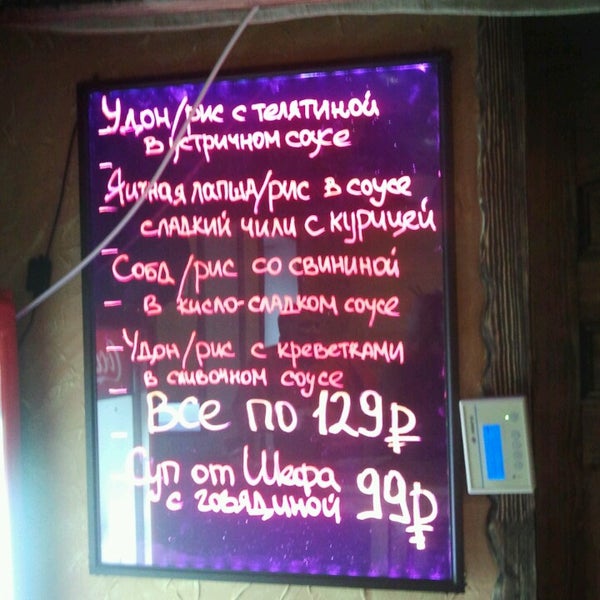 Удон/рис с телятиной
в устричном соусе
Яичная лапша/рис в соусе
сладкий чили с курицей
Соба/рис со свининой
в кисло-сладком соусе
Удон/рис с креветками
в сливочном соусе
Все по 129₽
Суп от Шефа
с говядиной 99₽